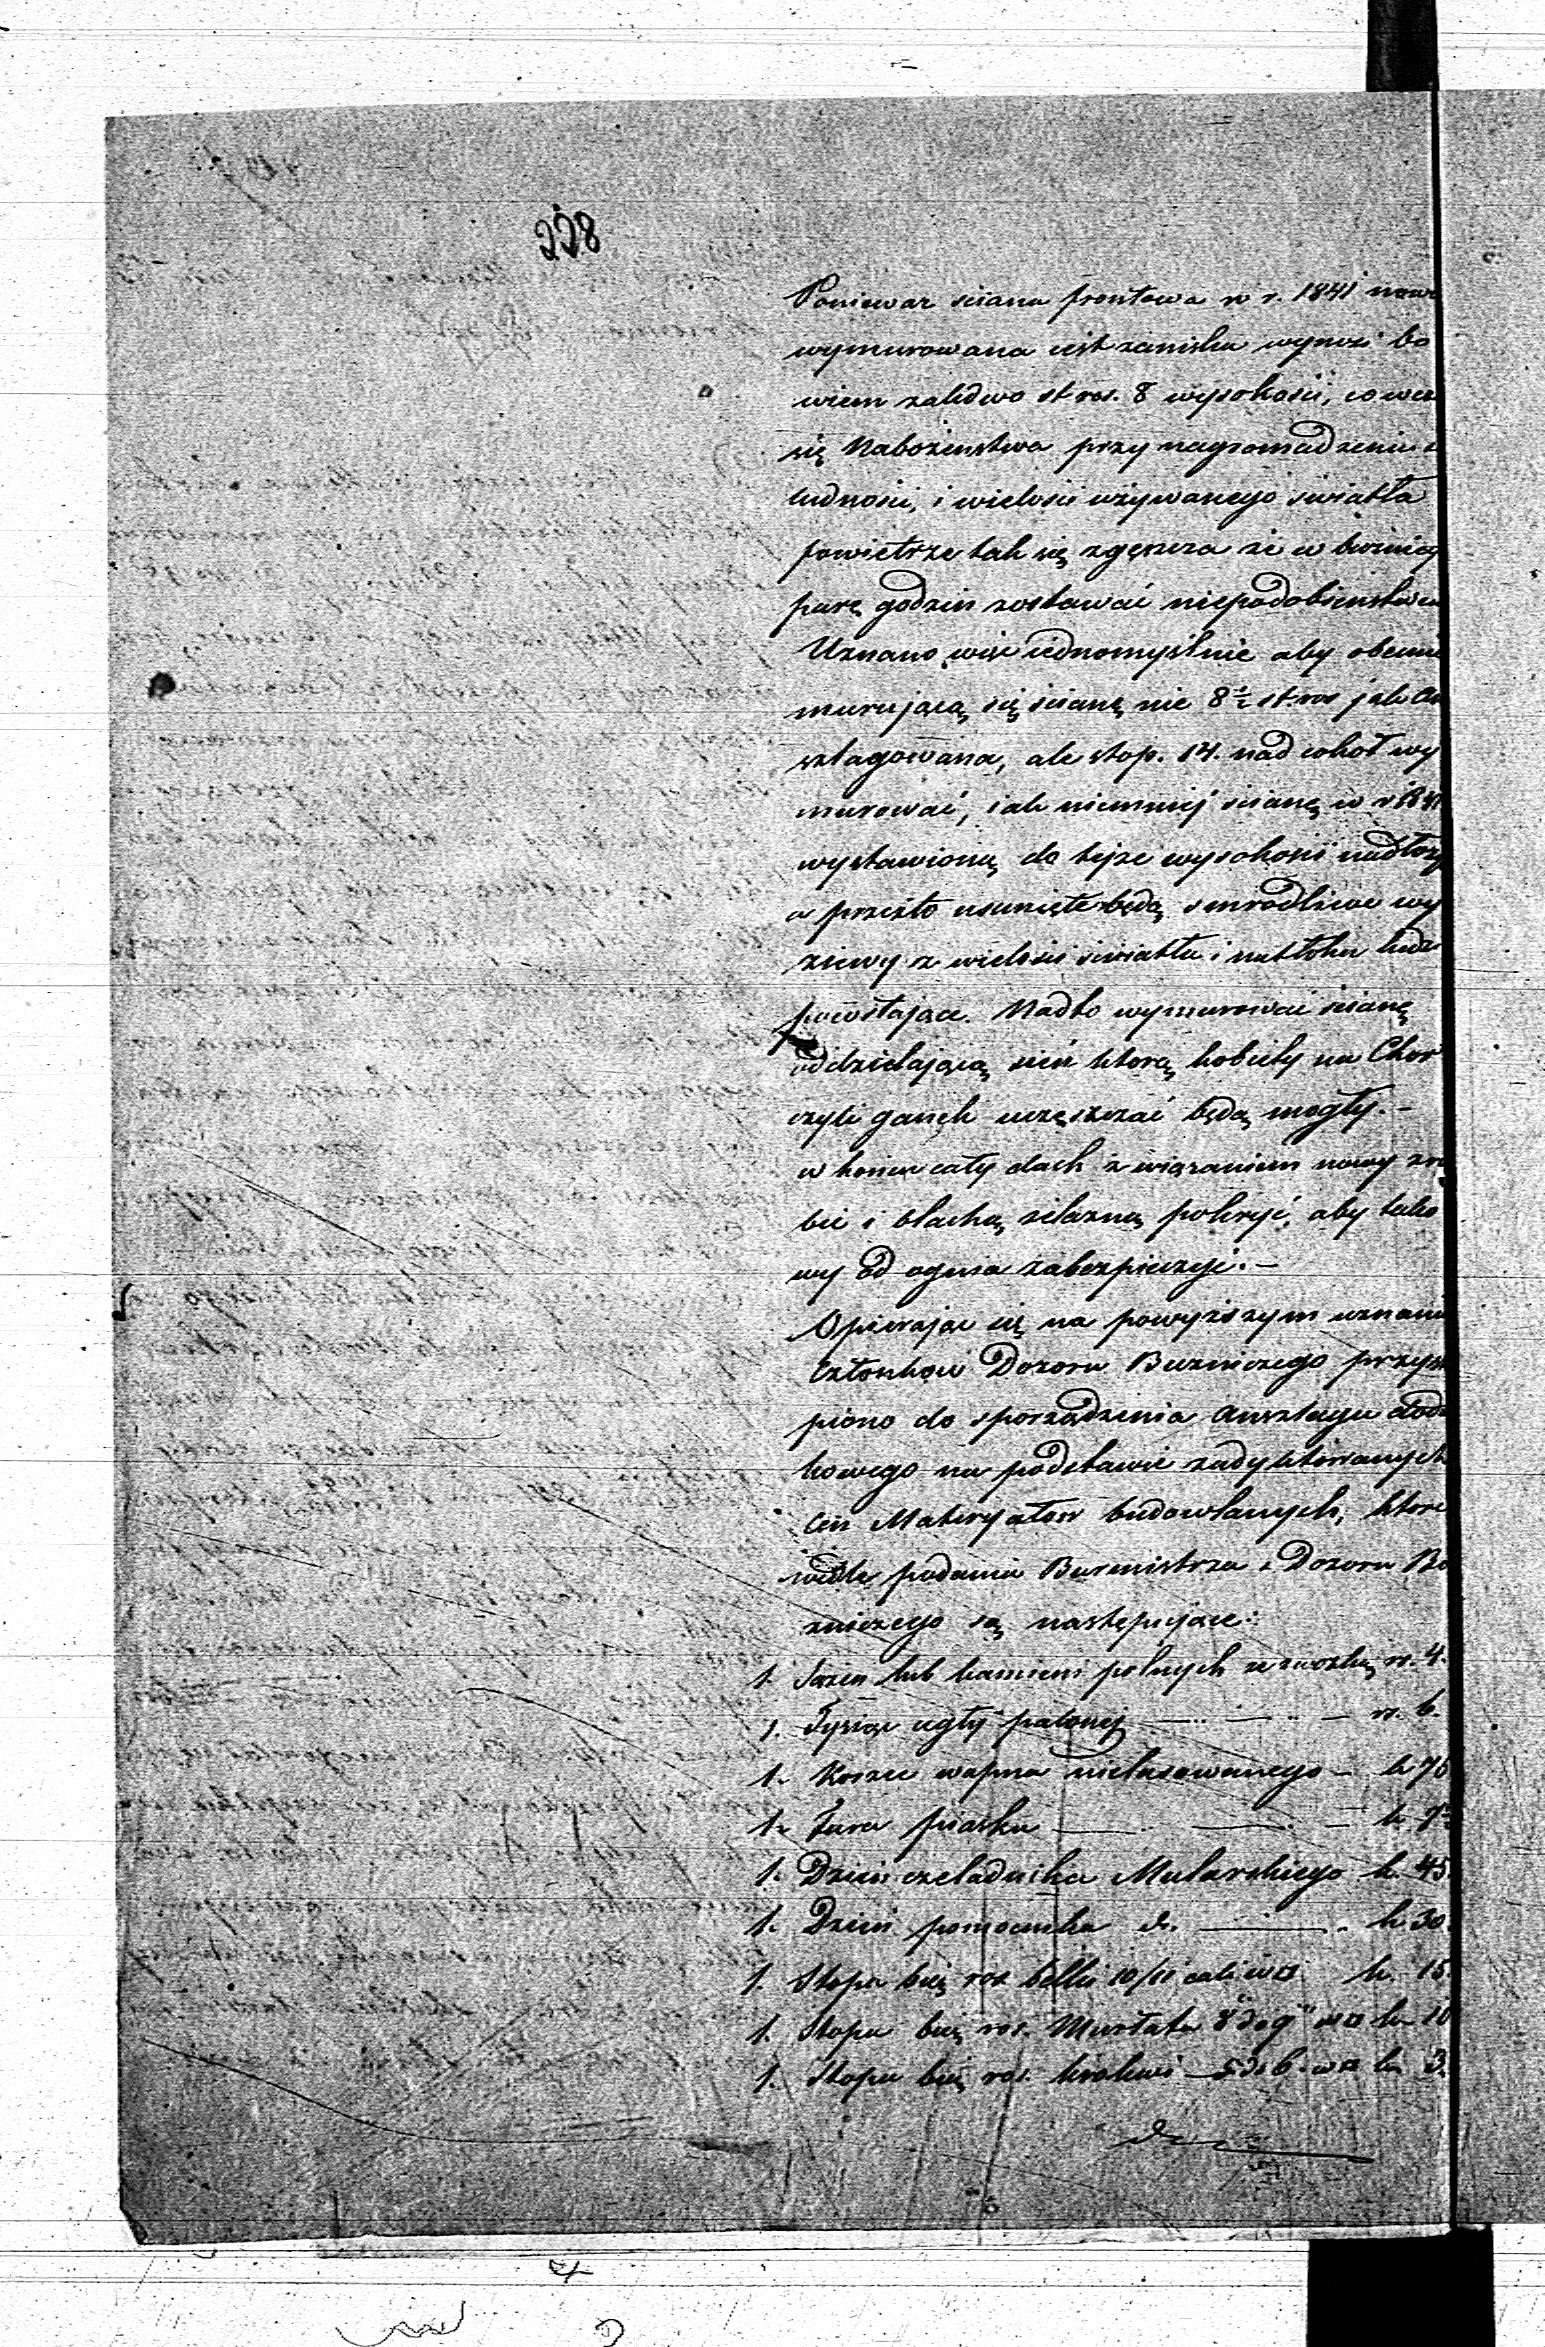 228
Ponieważ sciana frontowa w r. 1841 nowo
wymurowana iest zaniska wynosi bo
wiem zaledwo st ros. 8 wysokości, w czas
się Nabożenstwa przy nagromadzeniu
ludności, i wielości używanego swiatła
powietrze tak się zgęszcza że w bożnicy
parę godzin zostawać niepodobienstwem
Uznano więc iednomyślnie aby obecnie
murującą się scianę nie 8½ st. ros jak
szlagowana, ale stop. 14. nad cokoł wy
murować, iak niemniej scianę w r 1841
wystawioną do tejże wysokości nadłoży
a przezto usunięte będą smrodliwe wy
ziewy z wielości swiatła i natłoku ludz
powstające. Nadto wymurować scianę
oddzielającą sień którą kobiety na Chor
czyli ganek uczęszczać będą mogły.-
w końcu cały dach z wiązaniem nowy zro
bić i blachą żelazną pokryć, aby tako
wy od ognia zabezpieczyć.-
Opierając się na powyższym uznaniu
Członków Dozoru Bużniczego przystą
piono do sporządzenia Anszlagu doda
kowego na podstawie zadyktowanych
Cen Materyałow budowlanych, które
wedle podania Burmistrza i Dozoru Bo
zniczego są następujące:
1. Sążen kub kamieni polnych ze zwozką rs. 4.
1. Tysiąc cegły palonej — rs. 6
1. Korzec wapna nielasowanego - k 75
1. Fura piasku — k 7½
1. Dzień czeladnika Mularskiego k. 45.
1. Dzień pomocnika d. — k 30.
1. Stopa bież ros belki 10/11 cali w □ k. 15.
1. Stopa bież ros. Murłata 8" do 9" w □ k 10
1. Stopa bież ros. krokwi 5 do 6. w □ k 3.